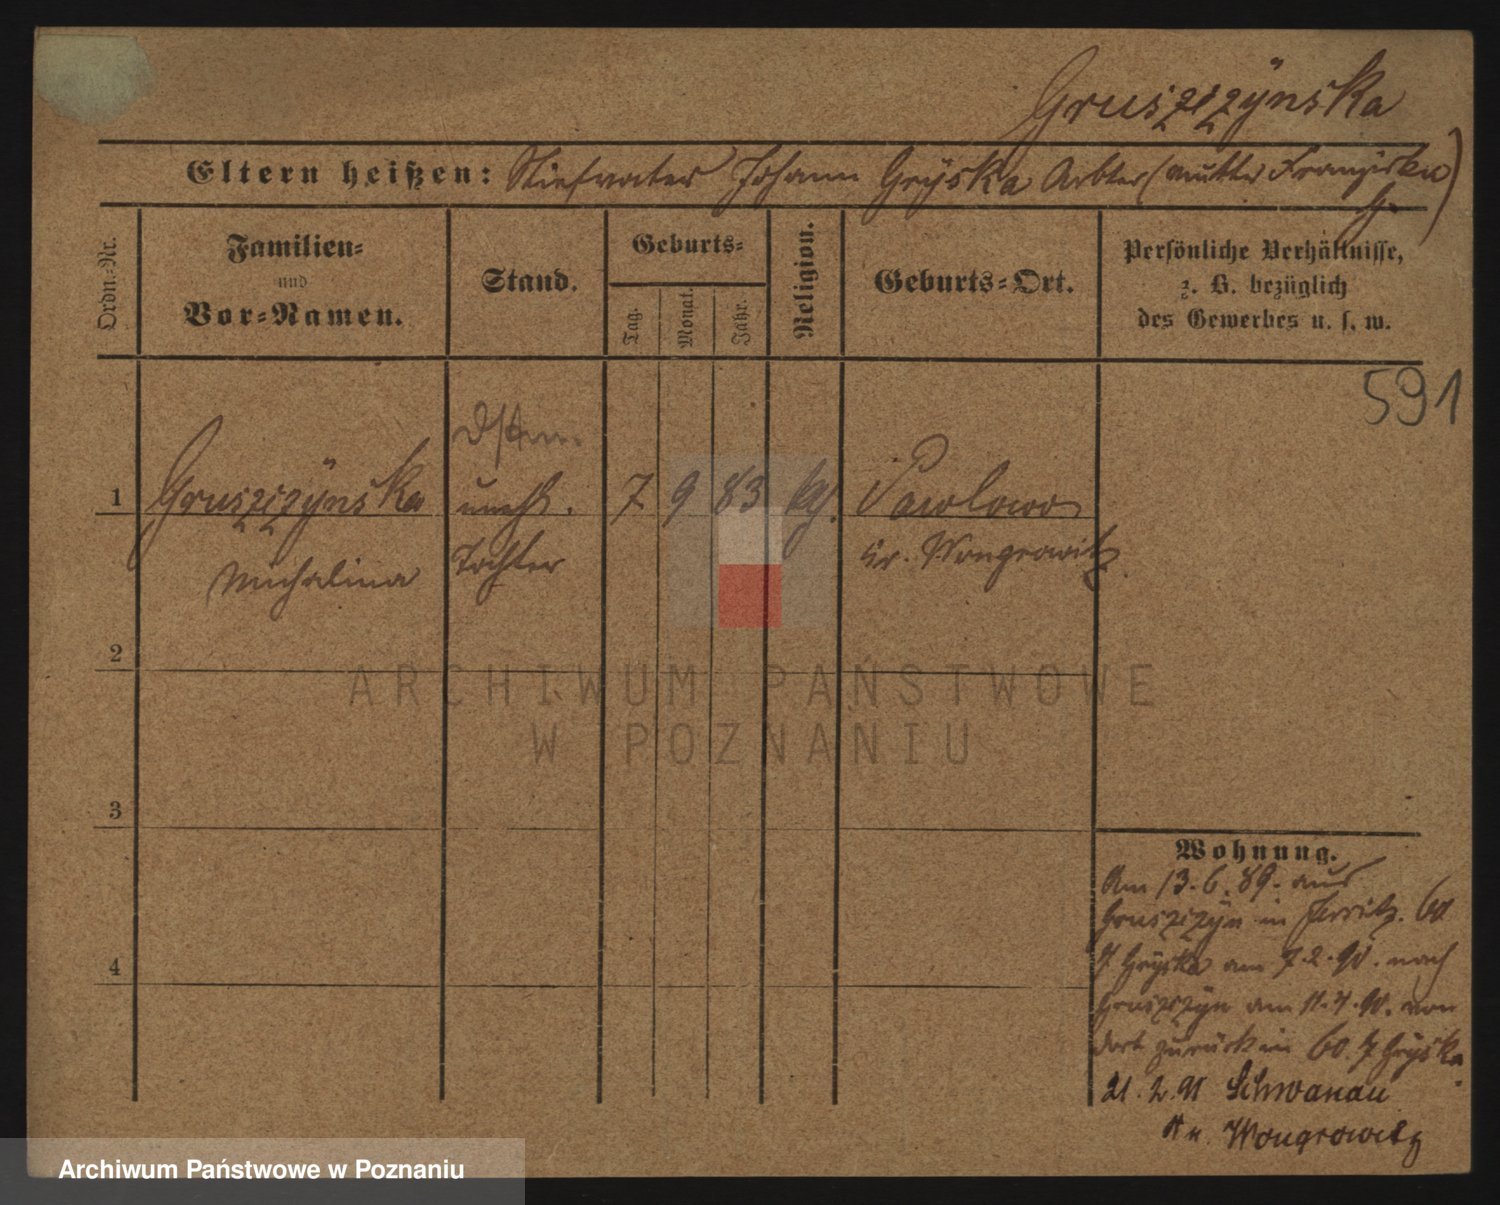 Gruszczÿnska
Eltern heißen: Stiefvater Johann Grÿska Arbter (Mutter Franziska
G.)
Ordn.=Nr.
Familien=
und
Vor=Namen.
Stand.
Geburts=
Tag.
Monat.
Jahr.
Religion.
Geburts=Ort.
Persönliche Verhältnisse,
z. B. bezüglich
des Gewerbes u. s. w.
591
1
Gruszczÿnska
Michalina
unehl.
Tochter
7 9 83
Pawlowo
Kr. Wongrowitz
2
3
4
Wohnung.
Am 13.6.89. aus
Gruszczÿn in Jersitz. 60
J Grÿska am 7.2.90. nach
Gruszczÿn am 11.4.90. von
dort zurück in 60. J Grÿska.
21.2.91 Schwanau
Kr. Wongrowitz
ARCHIWUM PAŃSTWOWE
W POZNANIU
Archiwum Państwowe w Poznaniu